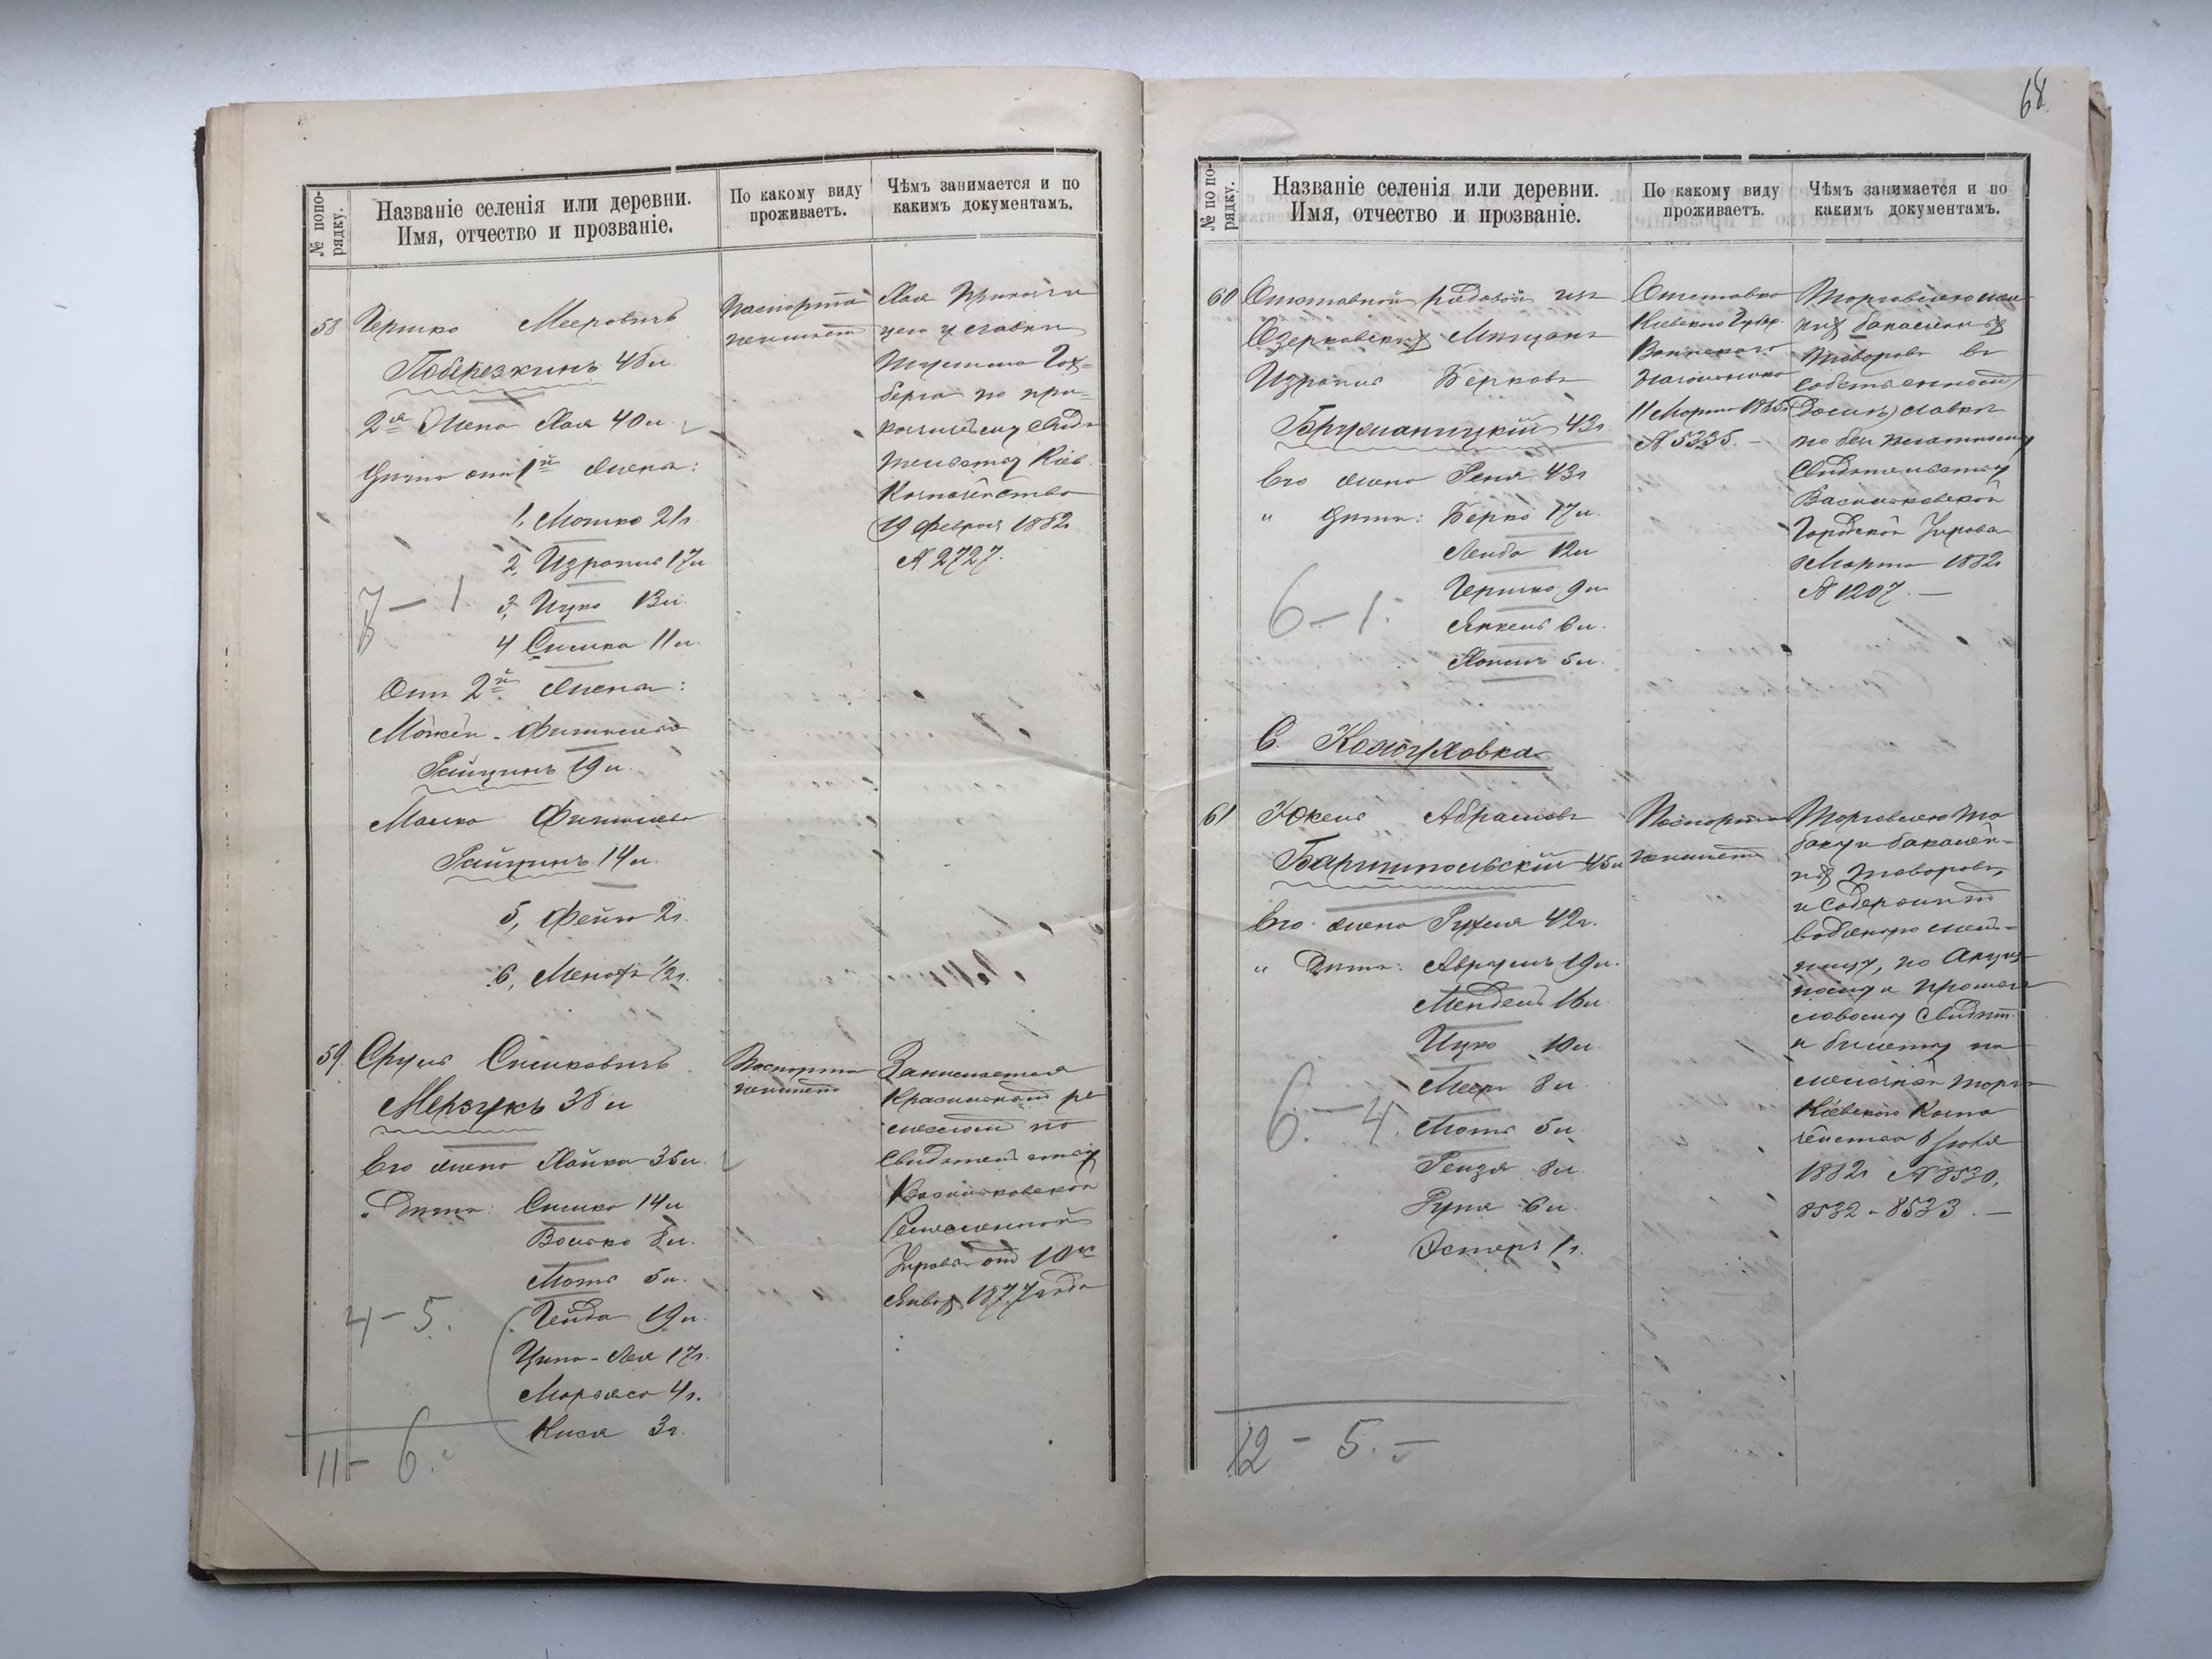 № попо-
рядку.
Названіе селенія или деревни.
Имя, отчество и прозваніе.
По какому виду
проживаетъ.
Чѣмъ занимается и по
какимъ документамъ.
58
Гершко Мееровичъ
Поберезкинъ 45 л.
2ая Жена Хая 40 л.
Дѣти отъ 1й жены:
1, Мошко 21 г.
2, Израиль 17 л.
3, Ицко 13 л.
4 Симха 11 л.
7 – 1
Отъ 2й жены:
Фишелевъ
Райцинъ 19 л.
Малка Фишелева
Райцинъ 14 л.
5, Фейга 2 г.
6, 1/2 г.
Паспорта
неимѣетъ
Хая
у лавки
по при-
Кіев.
Казначейства
19 Февраля 1882 г.
№ 2727.
59.
Сруль Симховичъ
Мерзукъ 38 л.
Его жена Хайка 35 л.
„ Дѣти: Симха 14 л.
Волько 8 л.
Моть 5 л.
Гейда 19 л.
Ципа-Лея 17 л.
4 г.
3 г.
4 – 5.
11 – 6.
Паспорта
неимѣетъ
Занимается
ре
месломъ по
Свидѣтельству
Васильковской
Ремесленной
Управы отъ 10го
Января 1877 года
68.
№ по по-
рядку.
Названіе селенія или деревни.
Имя, отчество и прозваніе.
По какому виду
проживаетъ.
Чѣмъ занимается и по
какимъ документамъ.
60
Отставной рядовой изъ
Мѣщанъ
Израиль Берковъ
43 г.
Его жена Геня 43 г.
„ Дѣти: Берко 17 л.
Лейба 12 л.
Гершко 9 л.
Янкель 6 л.
5 л.
6 – 1.
Отставка
Кіевскаго Губер.
Воинскаго
Начальника
11 Марта 1865 г.
№ 5335. –
Торговлею мел
кихъ бакалейныхъ
товаровъ въ
собственной
лавкѣ
по безплатному
Свидѣтельству
Васильковской
Городской Управы
Марта 1882 г.
№ 1207. –
С. Кожуховка
61
Юкель Абрамовъ
Баришпольскій 45 л.
Его жена Рухля 42 г.
„ Дѣти: Аврумъ 19 л.
Мендель 16 л.
Ицко 10 л.
Меер 8 л.
Моть 5 л.
Рейзя 8 л.
Руня 6 л.
Эстеръ 1 г.
6. – 4.
12 – 5. –
Паспорта
неимѣетъ
Торговлею та
баку и бакалей-
ныхъ товаровъ,
и содержитъ
водяную мель-
ницу, по Акциз
ному и промы
словому Свидѣт.
и билету на
мелочной торгъ
Кіевскаго Казна
чейства Іюля
1882 г. № 8530,
8532 – 8533. –